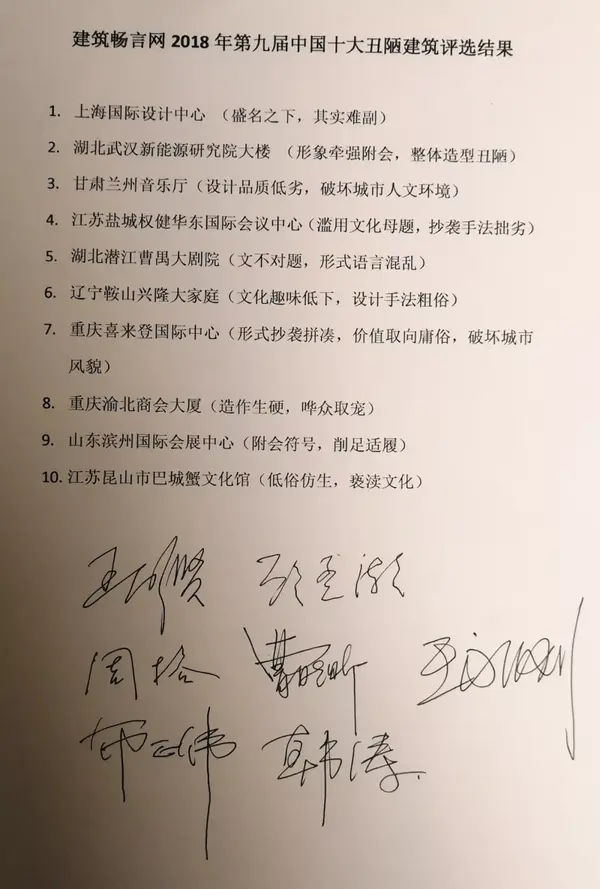 建筑畅言网 2018 年第九届中国十大丑陋建筑评选结果
1. 上海国际设计中心 （盛名之下，其实难副）
2. 湖北武汉新能源研究院大楼 （形象牵强附会，整体造型丑陋）
3. 甘肃兰州音乐厅（设计品质低劣，破坏城市人文环境）
4. 江苏盐城权健华东国际会议中心（滥用文化母题，抄袭手法拙劣）
5. 湖北潜江曹禺大剧院（文不对题，形式语言混乱）
6. 辽宁鞍山兴隆大家庭（文化趣味低下，设计手法粗俗）
7. 重庆喜来登国际中心（形式抄袭拼凑，价值取向庸俗，破坏城市
风貌）
8. 重庆渝北商会大厦（造作生硬，哗众取宠）
9. 山东滨州国际会展中心（附会符号，削足适履）
10. 江苏昆山市巴城蟹文化馆（低俗仿生，亵渎文化）
周榕
韩涛